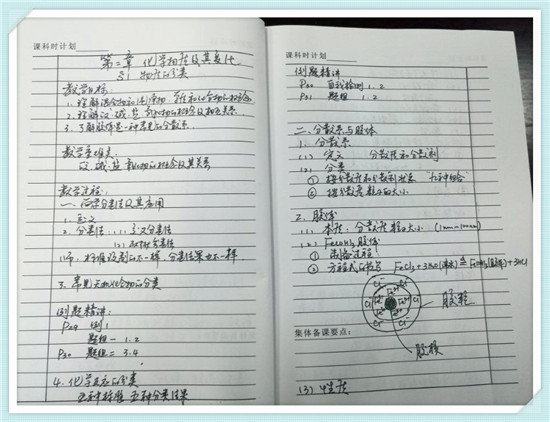 课科时计划
第二章 化学物质及其变化
§1 物质的分类
教学目标:
1. 理解混合物和纯净物、单质和化合物的概念
2. 理解酸、碱、盐、氧化物的概念及相互关系
3. 了解胶体是一种常见的分散系
教学重难点:
酸、碱、盐、氧化物的概念及其关系
教学过程:
一、
1. 意义
2. 分类法: (1) 交叉分类法
(2) 树状分类法
标准设制不一样, 分类结果也不一样.
3. 常见无机化合物的分类
例题精讲:
P29 例1
题组一 1. 2
P30 题组二 3.4
4. 化学反应的分类
五种标准 五种分类结果
课科时计划
例题精讲
P30 自我检测 1. 2
P31 题组 1. 2
二、分散系与胶体
1. 分散系
(1) 定义 分散质和分散剂
(2) 分类
① 按分散质和分散剂状态
② 按分散质粒子的大小
2. 胶体
(1) 本质: 分散质粒子大小 (1nm~100nm)
(2) Fe(OH)3 胶体
① 制备过程:
② 方程式的书写 FeCl3+3H2O(沸水) ≜ Fe(OH)3(胶体)+3HCl
胶粒
集体备课要点:
胶核
(3) 性质